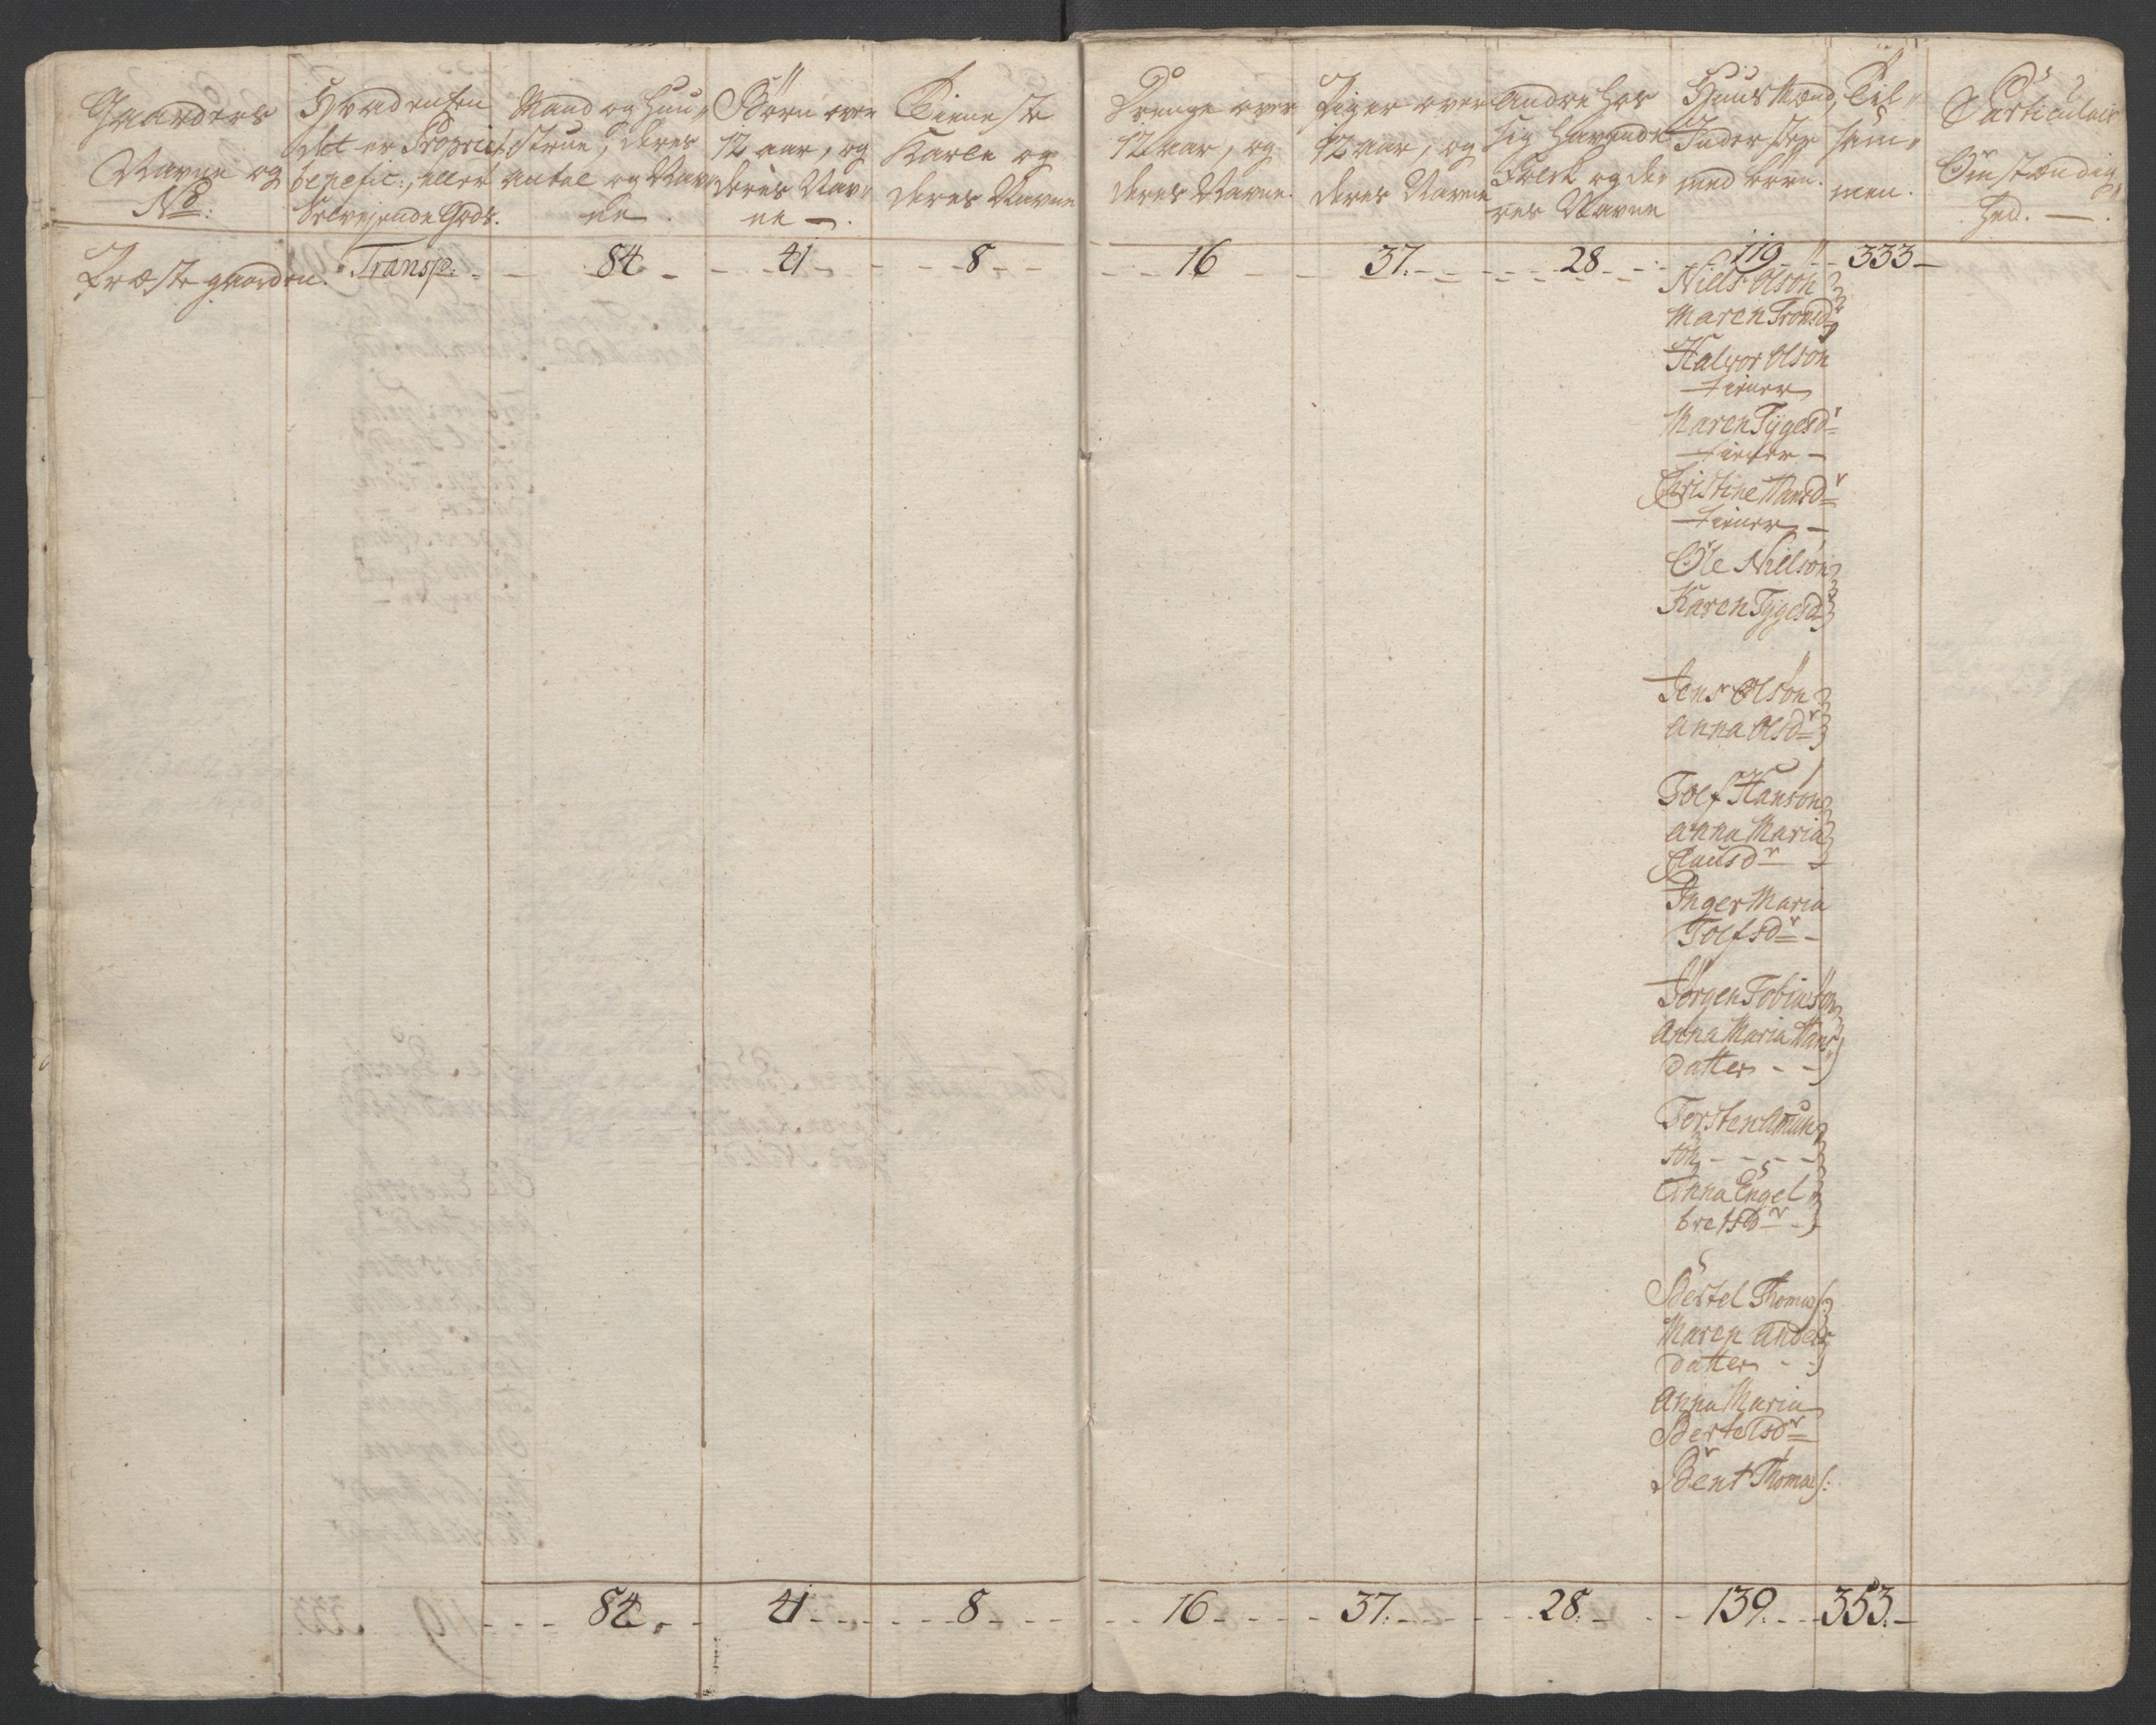 Gaardens
Navne og
No:
Hvad enten
det er Propriet:
benefic:, eller
Selvejende Gods.
Mand og Huu-
strue, deres
antal og Nav-
ne.
Børn over
12 aar, og
deres Nav-
ne —.
Tieneste
Karle og
deres Navne
Drenge over
12 aar, og
deres Navne.
Piger over
12 aar, og
deres Navne
Andre hos
sig havende
Folk og de-
res Navne
Huusmænd,
Inderster
med børn.
Til-
sam-
men.
Particulair
Omstændig-
hed. —.
Præstegaarden. Transp: 84 41 8 16 37. 28 119 333
Niels Olson
Maren Tronsdr
Halvor Olson
tiener
Maren Tygesdr
tiener
Christine Hansdr
tiener
Ole Nielson
Karen Tygesdr
Jens Olson
Anna Olsdr
Tolf Hanson
Anna Maria
Clausdr
Inger Maria
Tolfsdr
Jörgen Tobiason
Anna Maria Hans
datter
Torsten Amun
son
Anna Engel
bretsdr
Bertel Thomas:
Maren Anders
datter
Anna Maria
Bertelsdr
Bent Thomas:
84 41 8 16 37. 28. 139. 353.